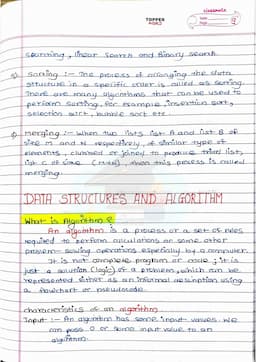 TOPPER
WORLD
classmate
Date
Page
searching, linear search and Binary search.
Sorting :- The process of arranging the data
structure in a specific order is called as sorting.
There are many algorithms that can be used to
perform sorting, for example, insertion sort,
selection sort, bubble sort etc.
Merging :- When two lists list A and list B of
size M and N respectively, of similar type of
elements, clubbed or joined to produce third list,
list C of size (M+N), then this process is called
merging.
DATA STRUCTURES AND ALGORITHM
What is Algorithm ?
An algorithm is a process or a set of rules
required to perform calculations or some other
problem-solving operations especially by a computer.
It is not complete program or code; it is
just a solution (logic) of a problem, which can be
represented either as an informal description using
a flowchart or pseudocode.
characteristics of an algorithm
Input :- An algorithm has some input values. We
can pass 0 or some input value to an
algorithm.